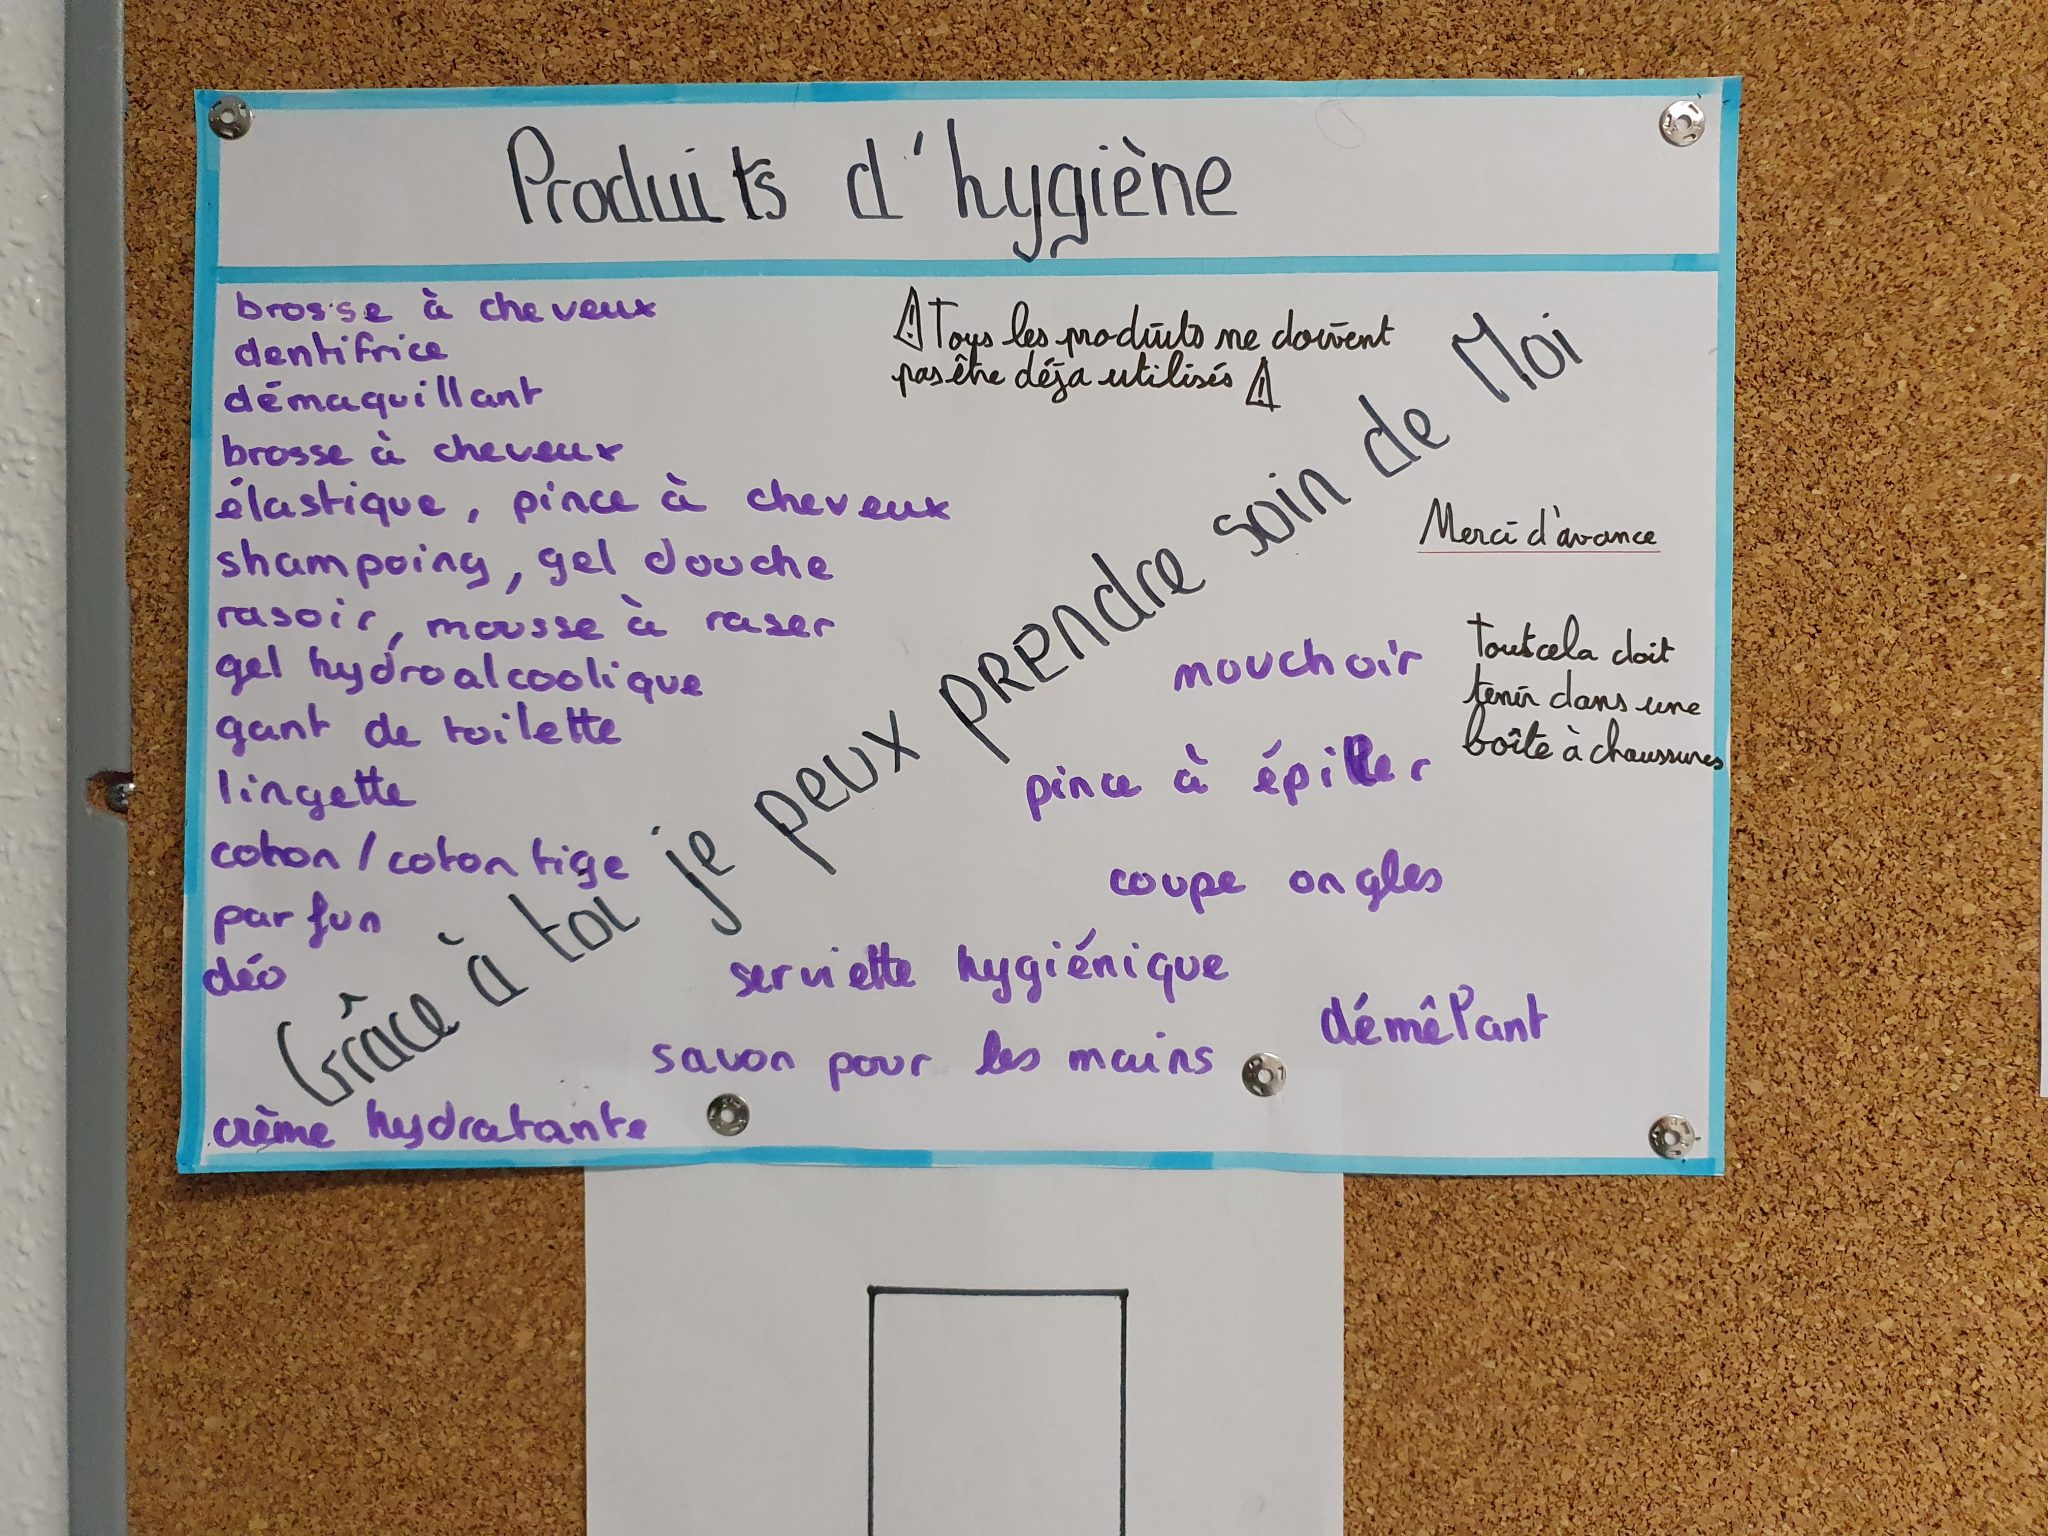 Produits d'hygiène
brosse à cheveux
dentifrice
démaquillant
brosse à cheveux
élastique, pince à cheveux
shampoing, gel douche
rasoir, mousse à raser
gel hydroalcoolique
gant de toilette
lingette
coton / coton tige
parfun
déo
crème hydratante
⚠ Tous les produits ne doivent
pas être déja utilisés ⚠
Grâce à toi je peux prendre soin de Moi
Merci d'avance
Tout cela doit
tenir dans une
boîte à chaussures
mouchoir
pince à épiler
coupe ongles
serviette hygiénique
démêlant
savon pour les mains